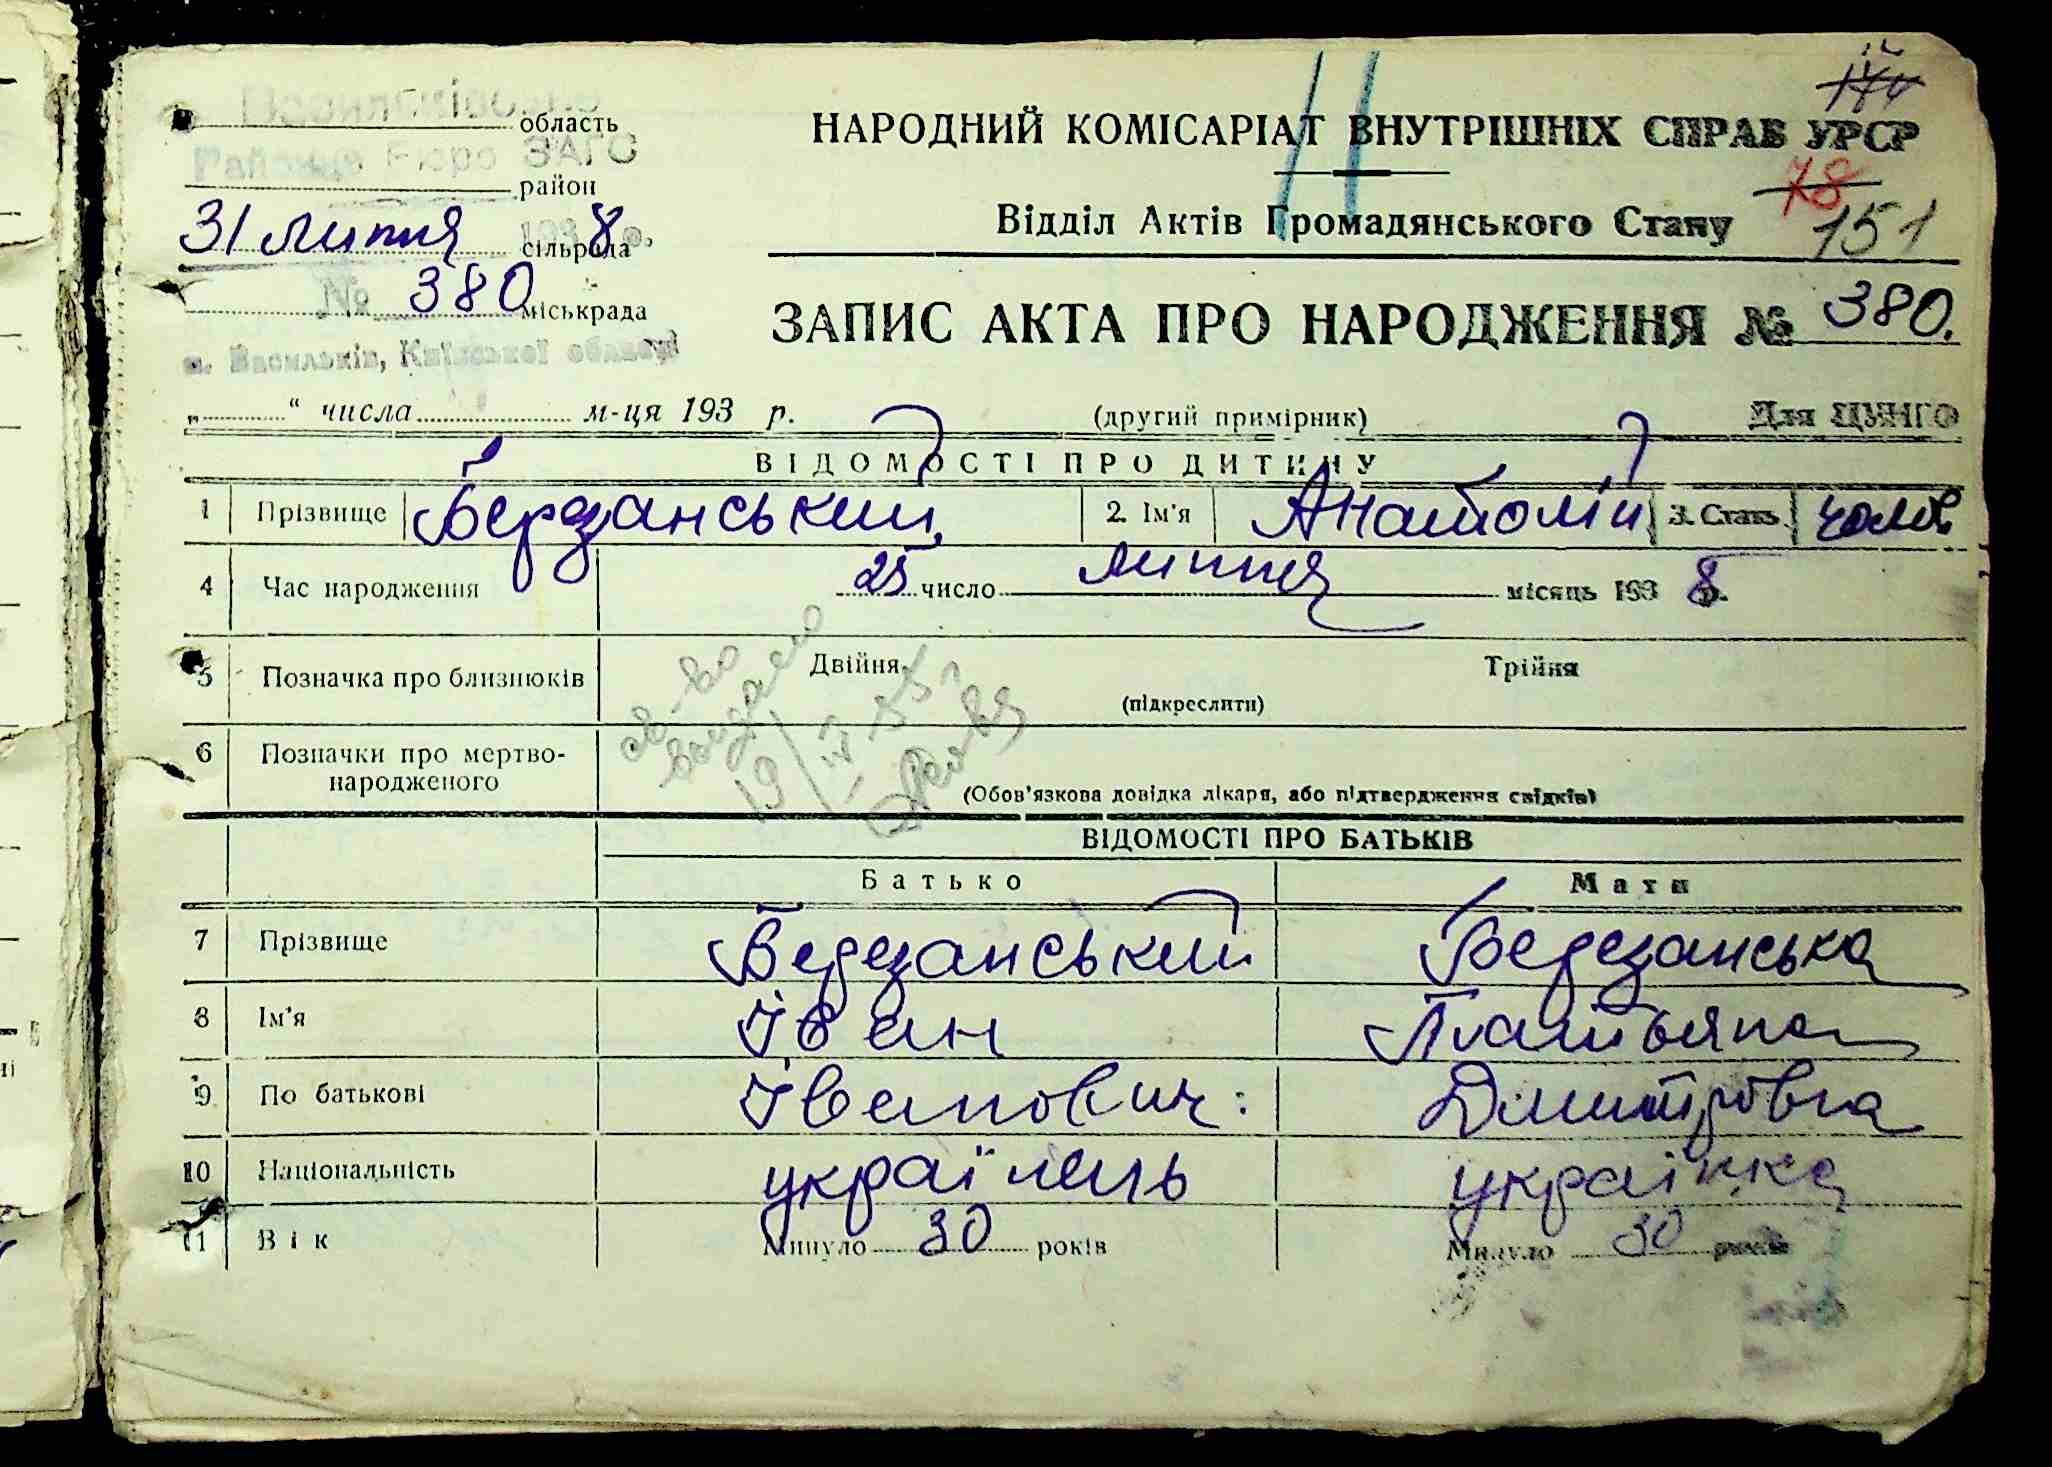 область
Районне Бюро ЗАГС
район
31 липня 1938 р.
сільрада
№ 380
міськрада
м. Васильків, Київської області
НАРОДНИЙ КОМІСАРІАТ ВНУТРІШНІХ СПРАВ УРСР
78
Відділ Актів Громадянського Стану
151
ЗАПИС АКТА ПРО НАРОДЖЕННЯ № 380.
„ “ числа м-ця 193 р.
(другий примірник)
Для ЦУНГО
ВІДОМОСТІ ПРО ДИТИНУ
1 Прізвище Березанський 2. Ім'я Анатолій 3. Стать чолов
4 Час народження 25 число липня місяць 1938 р.
5 Позначка про близнюків Двійня Трійня
(підкреслити)
6 Позначки про мертво-
народженого
(Обов'язкова довідка лікаря, або підтвердження свідків)
св-во
выдано
19/IV 55
ВІДОМОСТІ ПРО БАТЬКІВ
Батько Мати
7 Прізвище Березанський Березанська
8 Ім'я Іван Татьяна
9 По батькові Іванович: Дмитровна
10 Національність українець українка
11 Вік Минуло 30 років Минуло 30 років